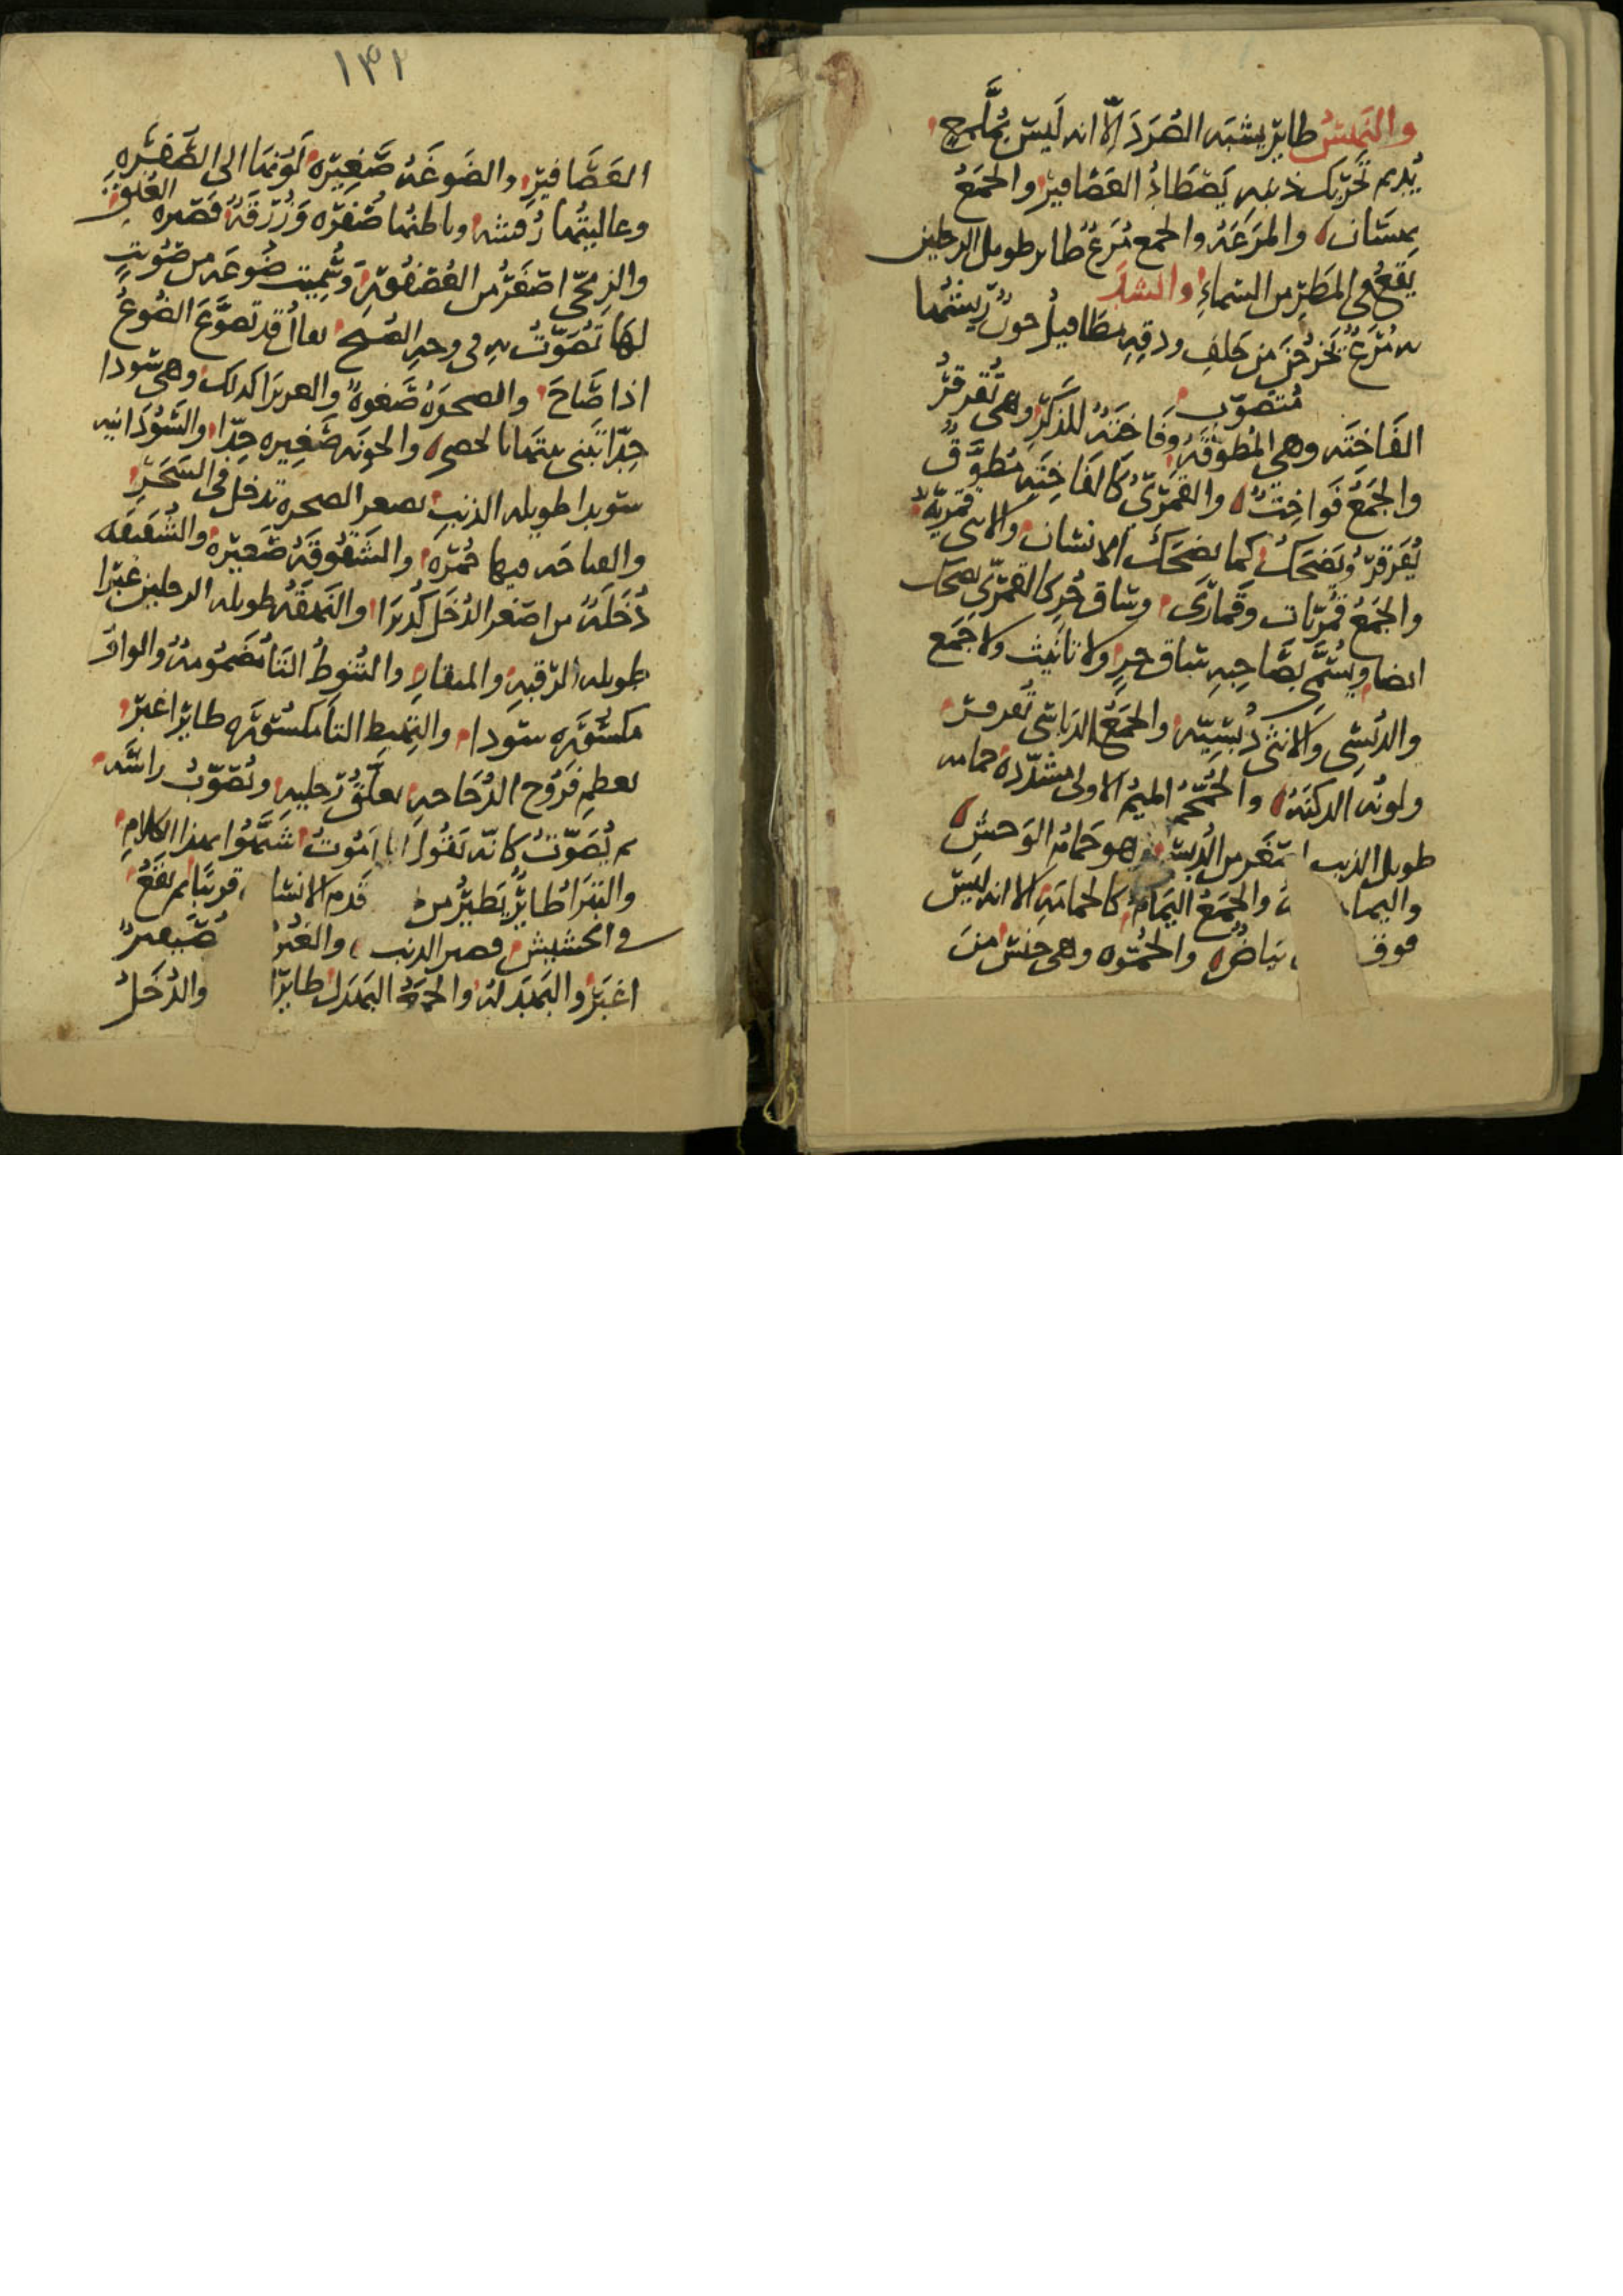 والنهس طاير يشبه الصرد الا انه ليس بملمح
يديم تحريك ذنبه يصطاد العصافير والجمع
نهسان والمرعة والجمع مرع طاير طويل الرجلين
يقع في المطر من السماء وانشد
به مرع يخرجن من خلف ودقه مطافيل جون ريشها
متصوب
الفاختة وهي المطوقة وفاختة للذكر وهي تقرقر
والجمع فواخت والقمري كالفاختة مطوق
يقرقر ويضحك كما يضحك الانسان والانثى قمرية
والجمع قمريات وقماري وساق حر كالقمري يضحك
ايضا ويسمى بصاحبه ساق حر ولا تانيث ولا جمع
والدبسي والانثى دبسية والجمع الدباسي تقرقر
ولونه الدكنة والحمحم الميم الاولى مشددة حمامه
طويل الذنب اصغر من الدبسي وهو حمام الوحش
واليما والجمع اليمام كالحمامة الا انه ليس
فوق بياض والحموه وهي جنس من
١٣٢
العصافير والضوعة صغيرة لونها الى الصفرة
وعاليتها رقشه وباطنها صفرة وزرقة قصيره العنق
والزمجى اصغر من العصفورة وسميت ضوعه من صوت
لها تصوت به في وجه الصبح يقال قد تضوع الضوع
اذا صاح والصحوه صعوة والعريرا كدلك وهي سودا
جدا تبنى بيتها بالحصى والجونه صغيره جدا والسودانيه
سويدا طويله الذنب تدخل في الشجر
فيها حمرة والشقوقة صغيرة والشقيقه
دخلة من اصغر الدخل كديرا طويله الرجلين غبرا
طويله الرقبه والمنقار والتنوط التا مضمومة والواو
مكسوره سودا والتهبط التا مكسوره طاير اغبر
بعظم فروخ الدجاجه يعلق رجليه ويصوب راسه
ثم يصوت كانه يقول انا اموت شبهوا بهذا الكلام
والنبرا طاير يطير من قدم الانسا قريبا ثم يقع
في الحشيش قصير الذنب والغبر صغير
اغبر والبهدلة والجمع البهدل طاير والدخل